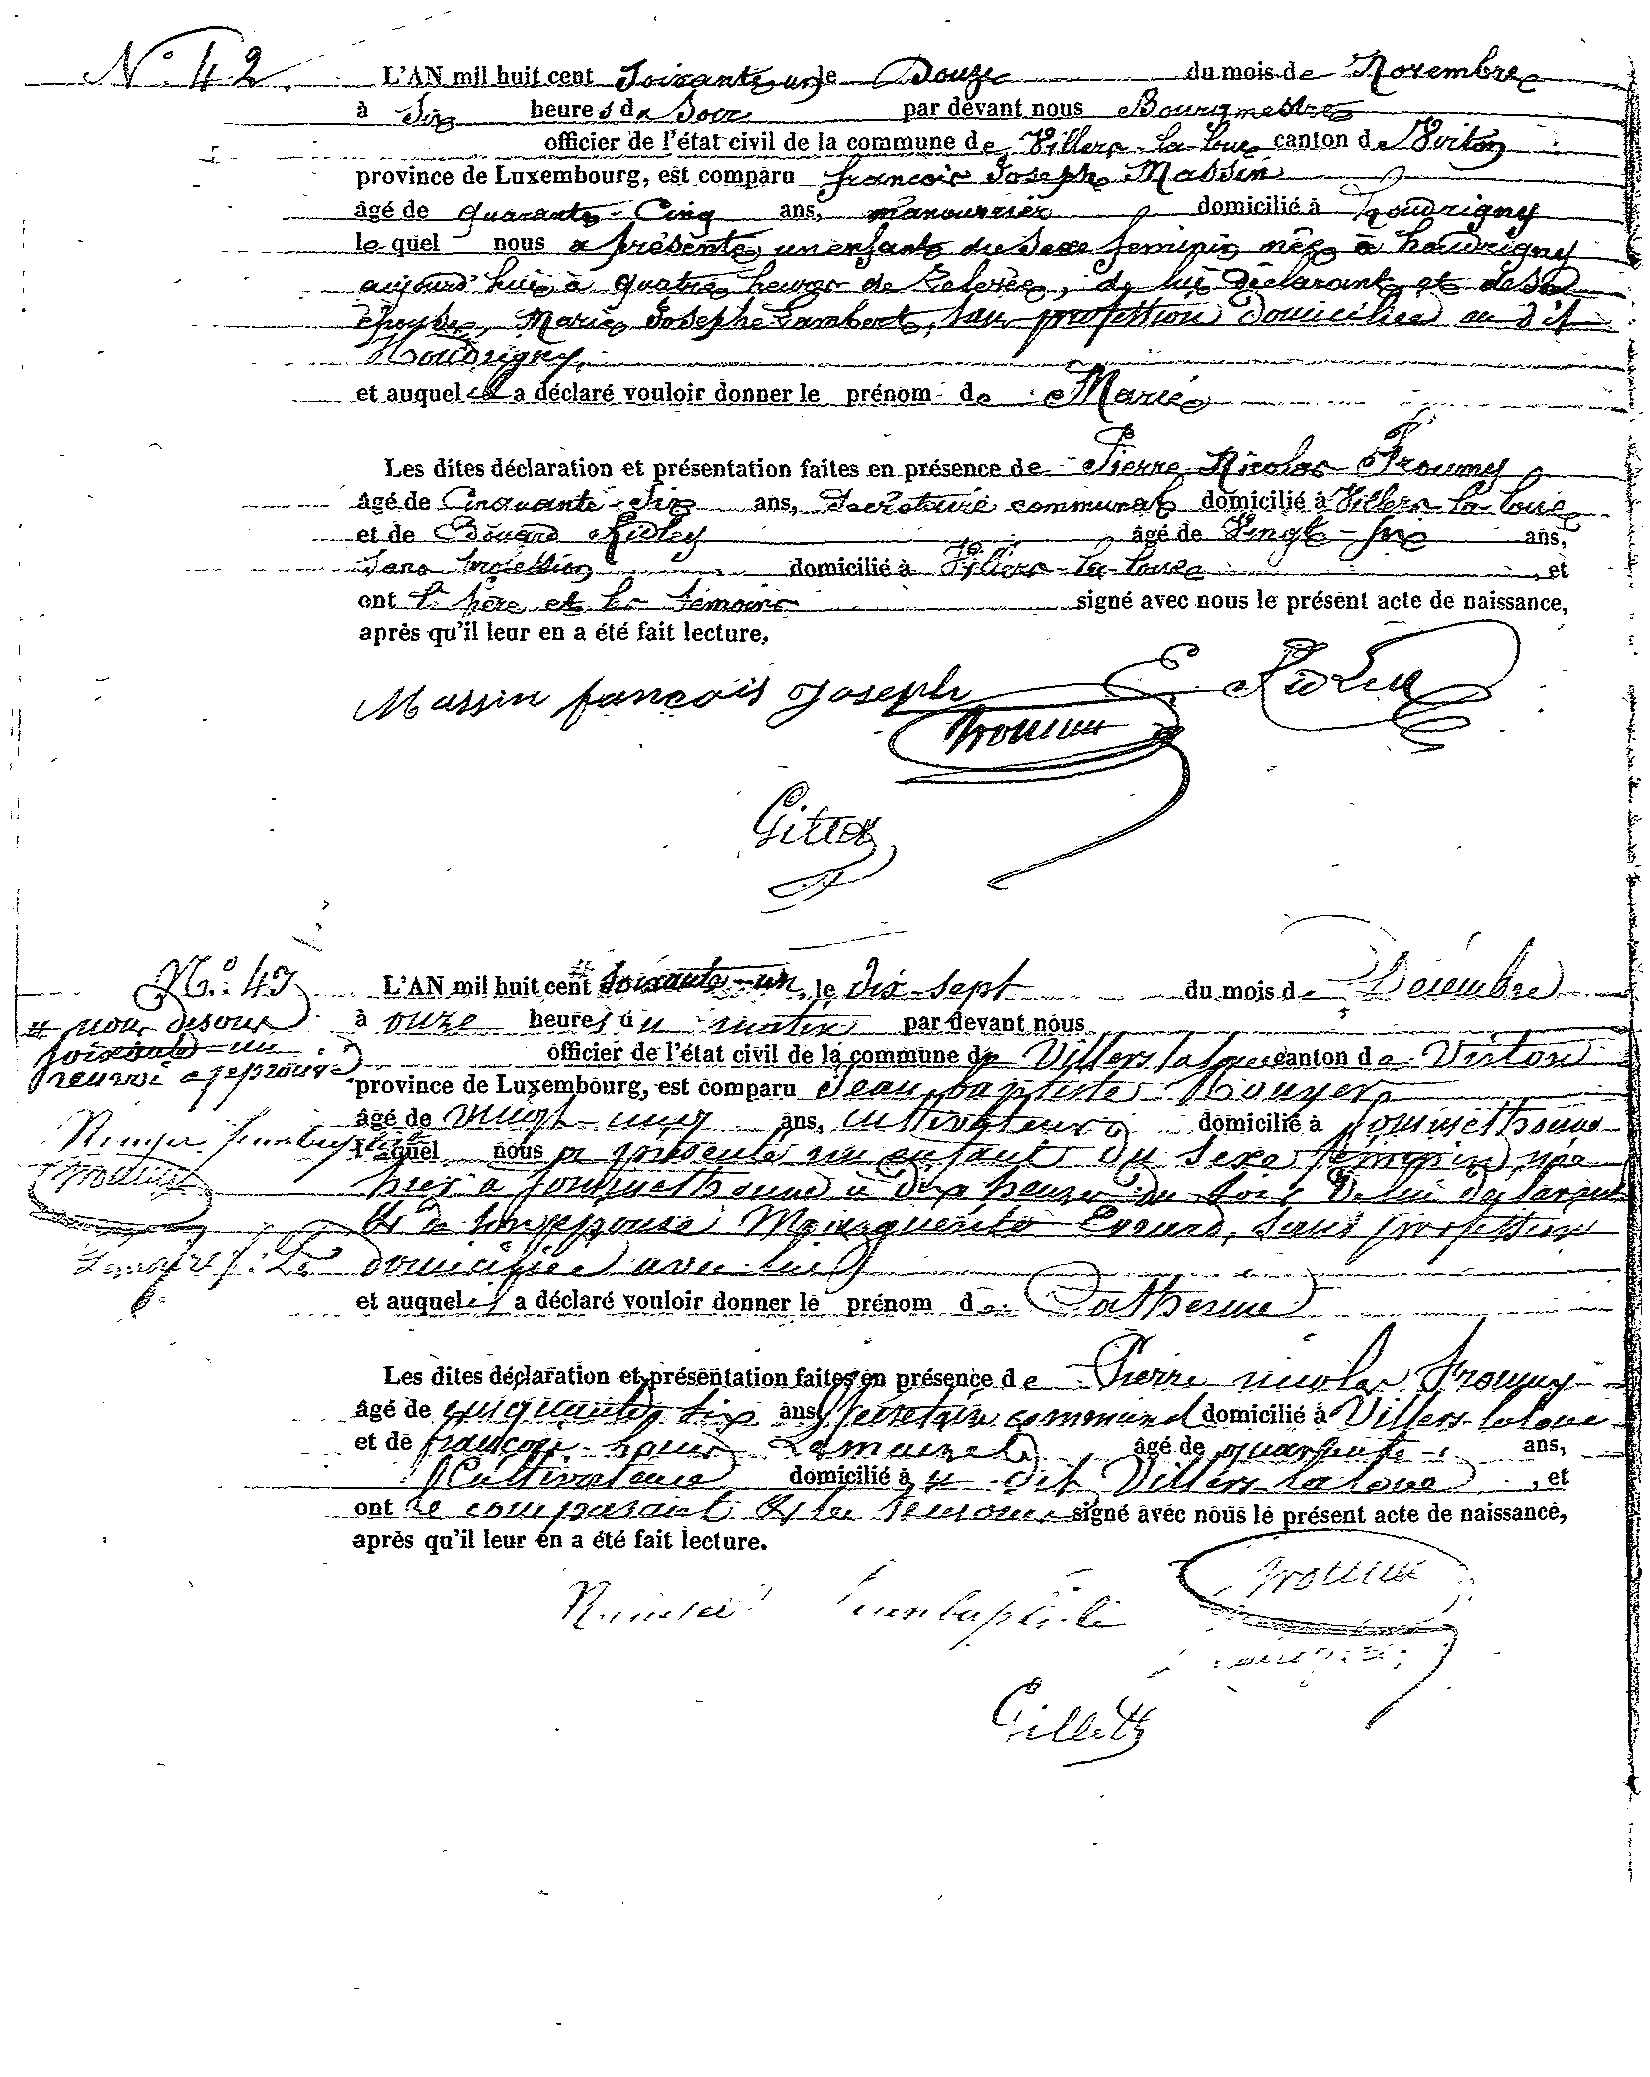 N° 42
L'AN mil huit cent Soixante un le Douze du mois de Novembre
à Six heures du Soir par devant nous Bourgmestre
officier de l'état civil de la commune de Villers-la-Loue canton de Virton
province de Luxembourg, est comparu françois Joseph Massin
âgé de quarante-Cinq ans, manouvrier domicilié à houdrigny
le quel nous a présenté un enfant du Sexe feminin née à houdrigny
aujourd'hui à quatre heures de relevée, de lui déclarant et de Son
épouse, Marie Josephe Lambert, San profession domiciliée au dit
Houdrigny
et auquel il a déclaré vouloir donner le prénom de Marie
Les dites déclaration et présentation faites en présence de Pierre Nicolas Froumy
âgé de Cinquante-Six ans, Secrétaire communal domicilié à Villers-la-Loue
et de Edouard Ridley âgé de Vingt-six ans,
Sans profession domicilié à Villers-la-Loue , et
ont le père et les témoins signé avec nous le présent acte de naissance,
après qu'il leur en a été fait lecture,
Massin francois Joseph E Ridley
Froumy
Gillet
N° 43
L'AN mil huit cent # Soixante-un le dix-sept du mois de Décembre
# nous disons
soixante-un
renvoi approuvé
à onze heures du matin par devant nous
officier de l'état civil de la commune de Villers la loue canton de Virton
province de Luxembourg, est comparu Jean baptiste
âgé de vingt-cinq ans, cultivateur domicilié à Sommethonne
Jean baptiste
Froumy
lequel nous a présenté un enfant du sexe féminin née
hier à Sommethonne à dix heures du soir de lui déclarant
et de son épouse Marguerite Evrard, sans profession
domiciliée avec lui
et auquel il a déclaré vouloir donner le prénom de Catherine
Les dites déclaration et présentation faites en présence de Pierre nicolas Froumy
âgé de cinquante six ans Secrétaire communal domicilié à Villers-la loue
et de françois âgé de quarante ans,
Cultivateur domicilié au dit Villers la loue , et
ont le comparant et les témoins signé avec nous le présent acte de naissance,
après qu'il leur en a été fait lecture.
Jean baptiste Froumy
Gillet